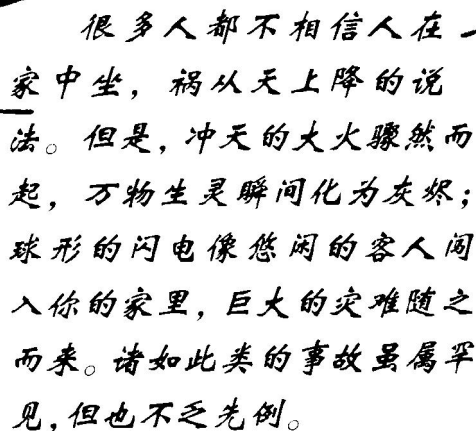 很多人都不相信人在
家中坐，祸从天上降的说
法。但是，冲天的大火骤然而
起，万物生灵瞬间化为灰烬；
球形的闪电像悠闲的客人闯
入你的家里，巨大的灾难随之
而来。诸如此类的事故虽属罕
见，但也不乏先例。